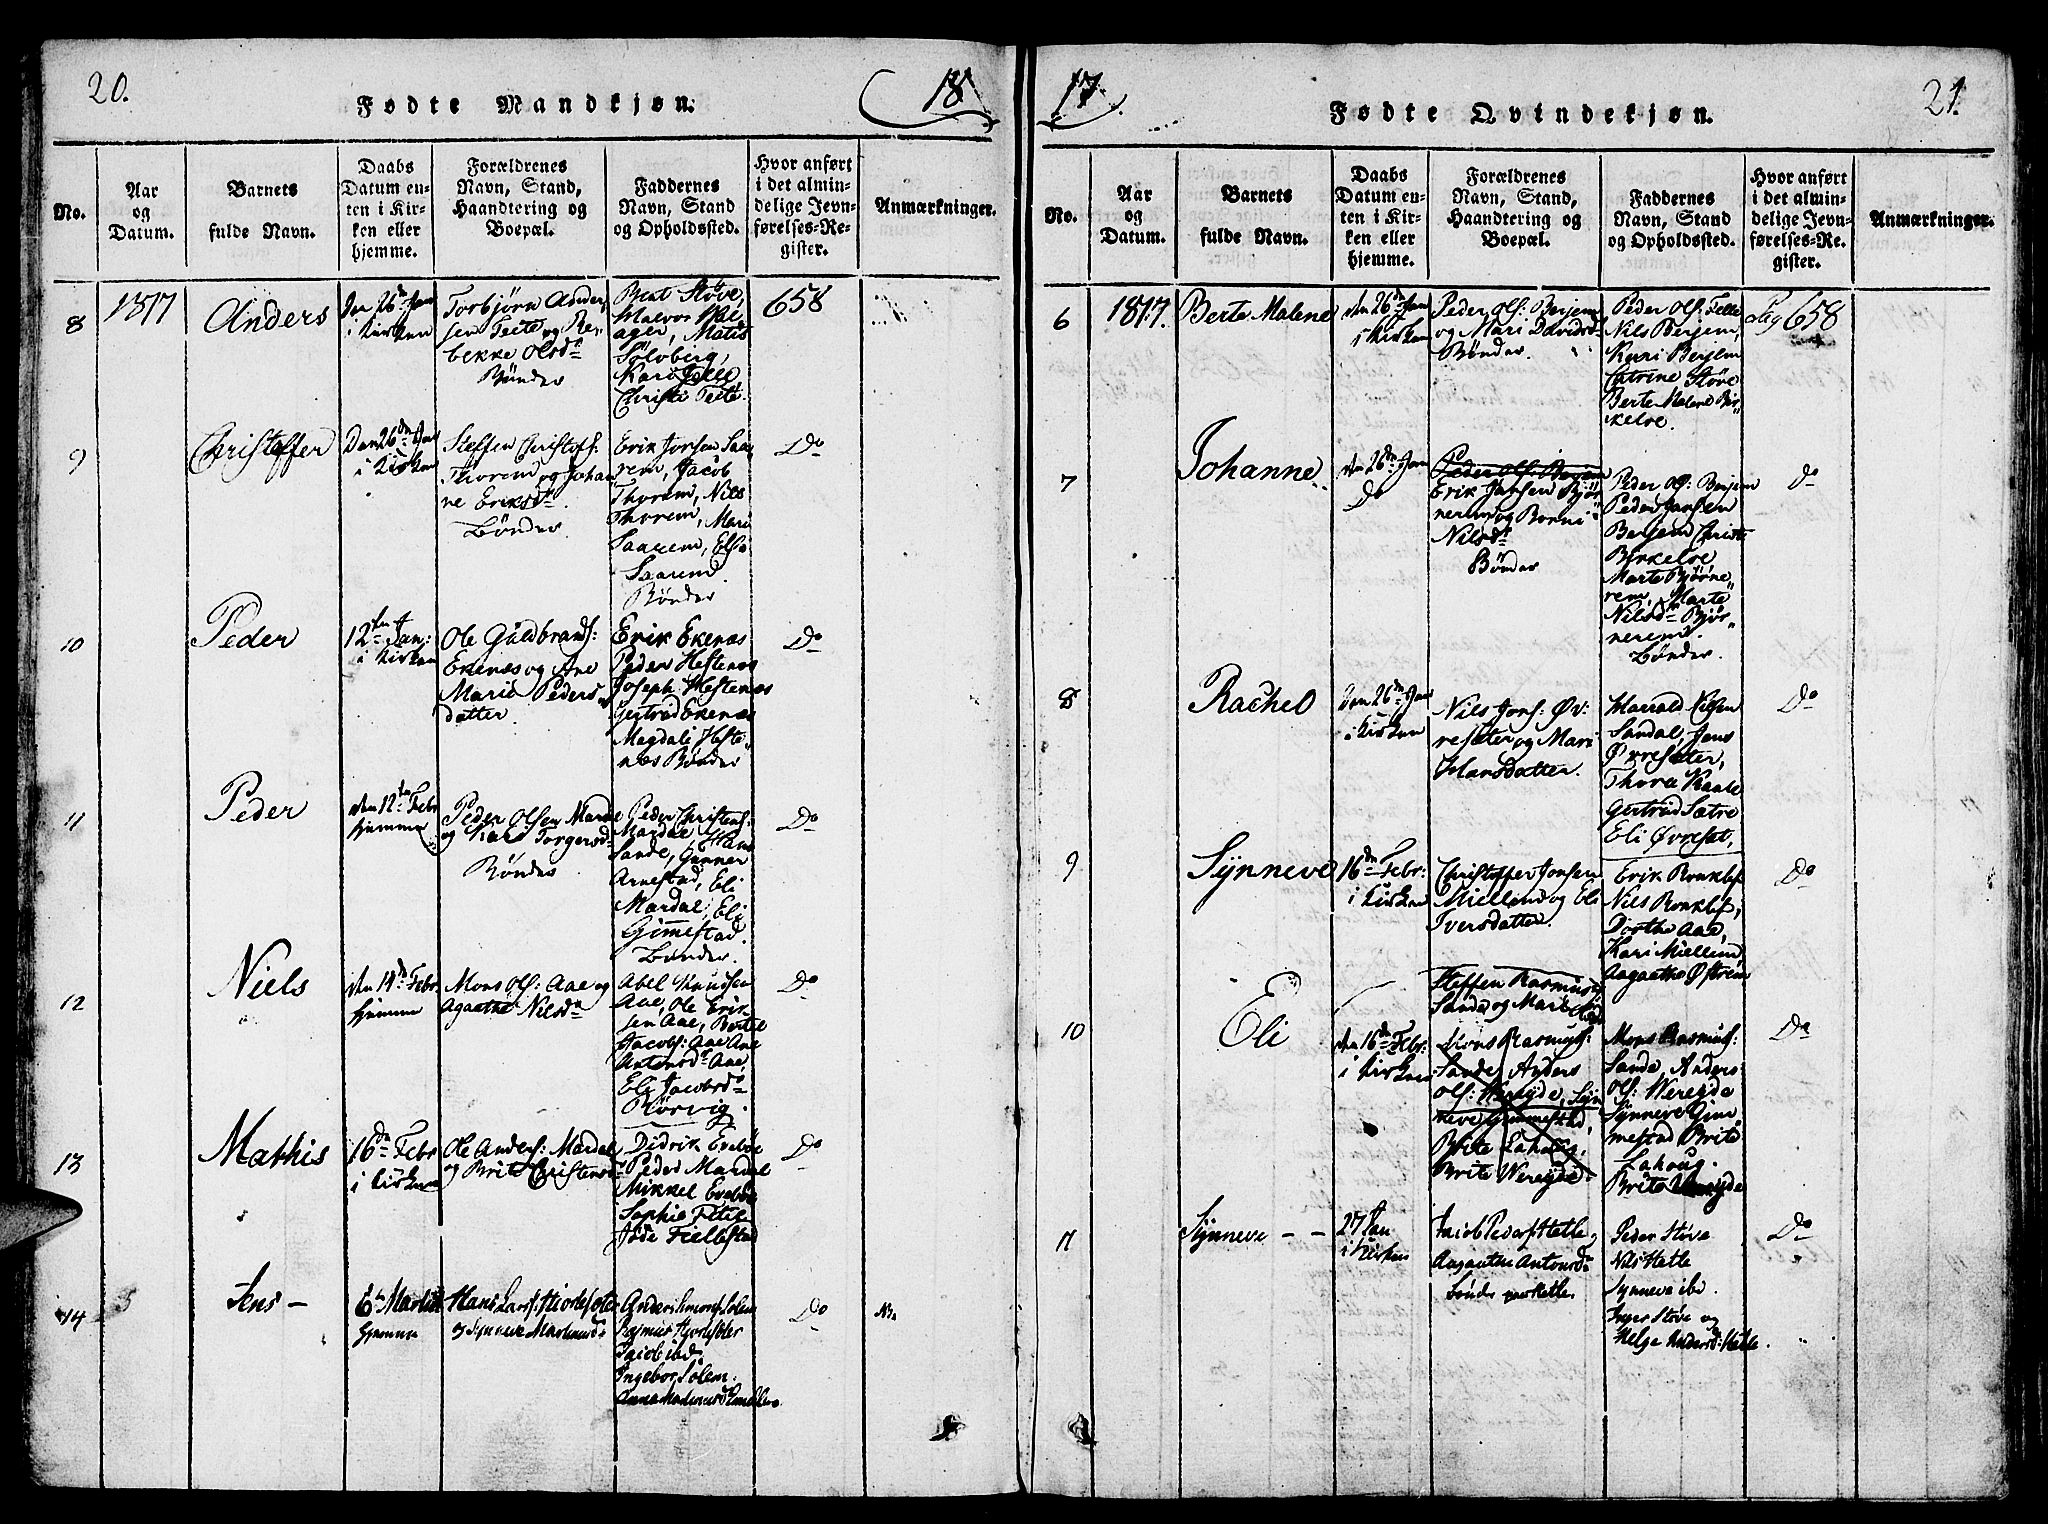 20.
Fødte Mandkjøn.
18
No.
Aar
og
Datum.
Barnets
fulde Navn.
Daabs
Datum en-
ten i Kir-
ken eller
hjemme.
Forældrenes
Navn, Stand,
Haandtering og
Boepæl.
Faddernes
Navn, Stand
og Opholdssted.
Hvor anført
i det almin-
delige Jevn-
førelses-Re-
gister.
Anmærkninger.
8
1817
Anders
Den 26de Jan
i Kirken
Torbjörn Ander
sen Teite og Re,
bekke Olsdr
Bönder
Brat Støve,
Solvberg,
Kari Felle
Christi Teite.
658
9
Christoffer
Den 26de Jan
i Kirken
Steffen Christofs:
Thorem og Johan
ne Eriksdr.
Bönder
Erik Jorsen Saa,
rem, Jacob
Thorem, Nils
Thorem, Mari
Saarem, Else
Saarem.
Bönder
Do
10
Peder
12te Jan:
i Kirken
Ole Guldbrands:
Ekenæs og Ane
Marie Peders
datter.
Erik Ekenæs
Peder Hestenæs
Joseph Hestenæs
Gertrud Ekenæs
Magdali Heste
næs Bönder
Do
11
Peder
den 12te Febr
hjemme
Peder Olsen Mardal
og Kari Torgersd
Bönder
Peder Christens:
Mardal, Hans
Sande, Gunner
Arnestad, Eli
Mardal, Eli
Gimestad.
Bönder.
Do
12
Niels
den 14de Febr.
hjemme
Mons Ols: Aae og
Agaathe Nilsdr
Abel Knudsen
Aae, Ole Erik
sen Aae, Bertel
Jacobs: Aae Ane
Antonsdr Aae,
Eli Jacobsdr
Rörvig.
Do
13
Mathis
16de Febr
i Kirken
Ole Anders: Mardal
og Brite Christensd
Didrik Evebøe
Peder Mardal
Mikkel Evebøe
Sophie Fitie
Fiellestad
Do
14
Jens –
6te Martii
hjemme
Hans Lars: Hiortesæter
og Synneve
Anders Simons: Solem
Rasmus Hiortesæter
Jacob ibd.
Ingebor Solem.
Do
17
21.
Fødte Qvindekjøn.
No.
Aar
og
Datum.
Barnets
fulde Navn.
Daabs
Datum en-
ten i Kir-
ken eller
hjemme.
Forældrenes
Navn, Stand,
Haandtering og
Boepæl.
Faddernes
Navn, Stand
og Opholdssted.
Hvor anført
i det almin-
delige Jevn-
førelses-Re-
gister.
Anmærkninger.
6
1817.
Berte Malene
den 26de Jan
i Kirken
Peder Ols: Berjem
og Mari Davidsd
Bönder.
Peder Ols: Felle
Nils Berjem,
Kari Berjem
Catrine Støve
Berte Malene Bir,
kelve.
Pag 658
7
Johanne
den 26de Jan
Do
Peder Ols: Berjem
Erik Jansen Bjør
nerem og Borni
Nilsdr
Bönder
Peder Ols: Berjem
Peder Jansen
Berjem Christi
Birkelve
Marte Bjørne
rem, Marte
Nilsdr Bjør
nerem.
Bönder.
Do
8
Rachel
Den 26de Jan
i Kirken
Nils Jons: Øv:
resæter og Mari
Hansdatter.
Harrald Nilsen
Sandal, Jens
Øvresæter,
Thora Kaale
Gertrud Sætre
Eli Øvreset,
Do
9
Synneve
16de Febr:
i Kirken
Christoffer Jonsen
Miellem og Eli
Iversdatter.
Erik
Nils
Dorthe Aae,
Kari Miellem
Aagaathe Østrem
Do
10
Eli
den 16de Febr:
i Kirken
Steffen Rasmus:
Sande og Marie
Mons Rasmus:
Sande, Anders
Ols: Wereyde, Syn
neve Gimmestad,
Brite Lahoug,
Brite Wereyde.
Mons Rasmus:
Sande, Anders
Ols: Wereyde
Synneve Gim,
mestad Brite
Lahoug.
Brite Wereyde
Do
11
Synneve – –
27 Jan
i Kirken
Jacob Peders: Hetle
Aagaathe Antonsdr
Peder Støve
Nils Hetle
Synneve ibd.
Inger Støve og
Helge Andersd: Hetle.
Do